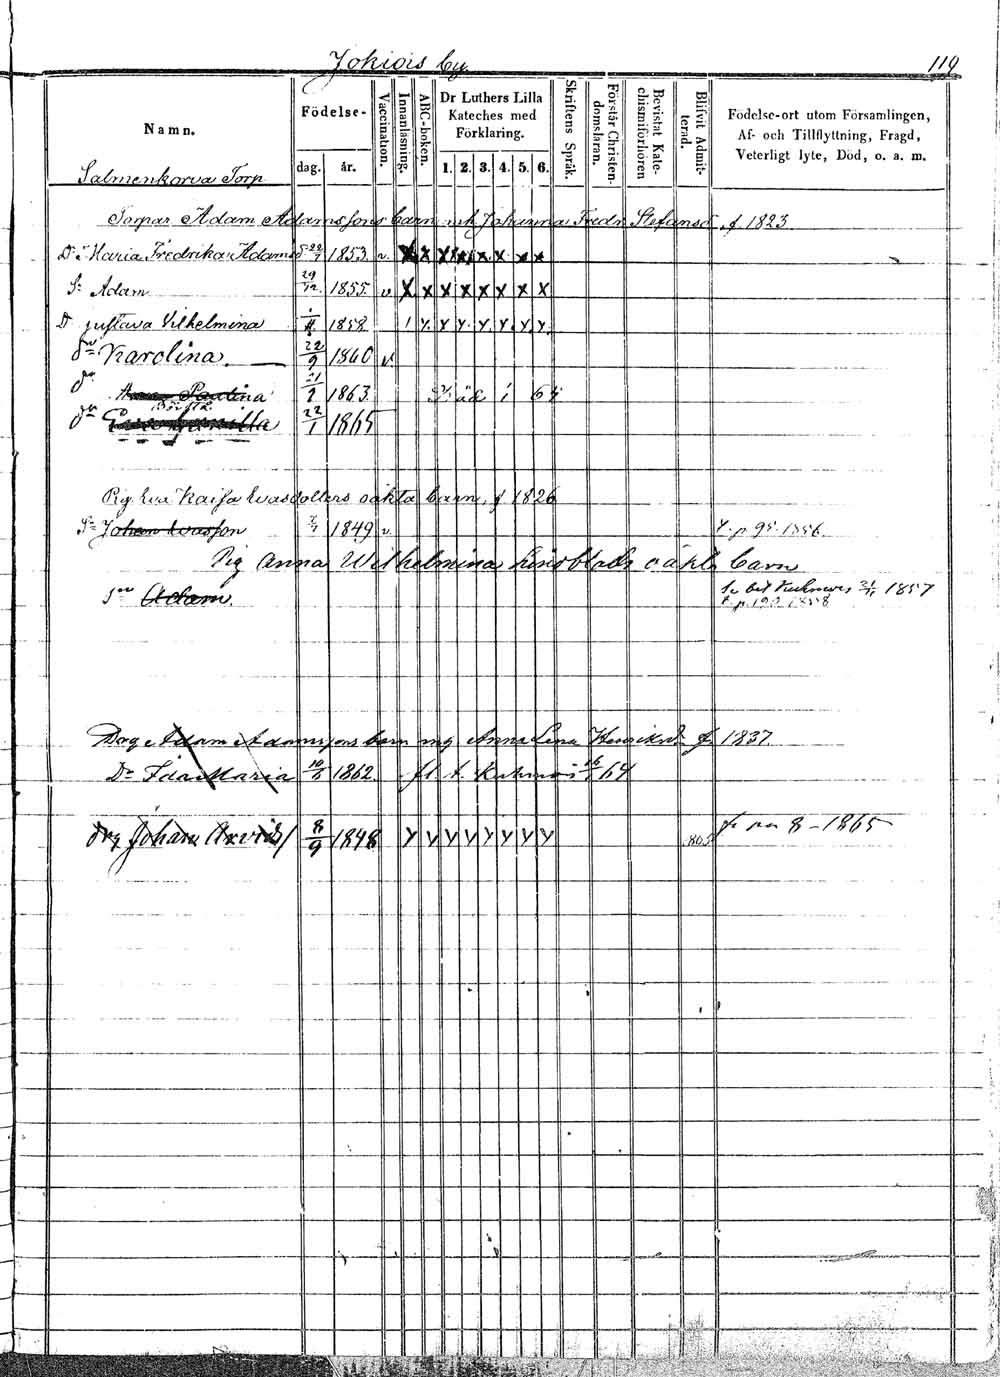 Jokiois by 119
Namn. Födelse- dag. år. Vaccination. Innanläsning. ABC-boken. Dr Luthers Lilla Kateches med Förklaring. 1. 2. 3. 4. 5. 6. Skriftens Språk. Förstår Christendomsläran. Bevistat Katechismiförhören Blifvit Admitterad. Födelse-ort utom Församlingen, Af- och Tillflyttning, Fragd, Veterligt lyte, Död, o. a. m.
Salmenkorva Torp
Torpar Adam Adamssons barn mh Johanna Fredr. Stefansd. f 1823
Dr Maria Fredrika Adamsd 1853 v. x x x x x x x x
Sn Adam 29/12 1855 v x x x x x x x x
Dr Gustava Vilhelmina 1858
Karolina 22/9 1860 v.
Paulina 1863. 65
22/1 1865
Pig Eva Kaisa barn f 1826
Sn Johan 1849 v. 1856
Pig Anna Wilhelmina Lindblads oäkta barn
Sn Adam. 1857
1858
Dreg Adam Adamssons barn m Anna Lena Henriksd. f 1837
Dr Ida Maria 1862 64
Drg Johan Arvid 8/9 1848 y y y y y y y y 8 - 1865